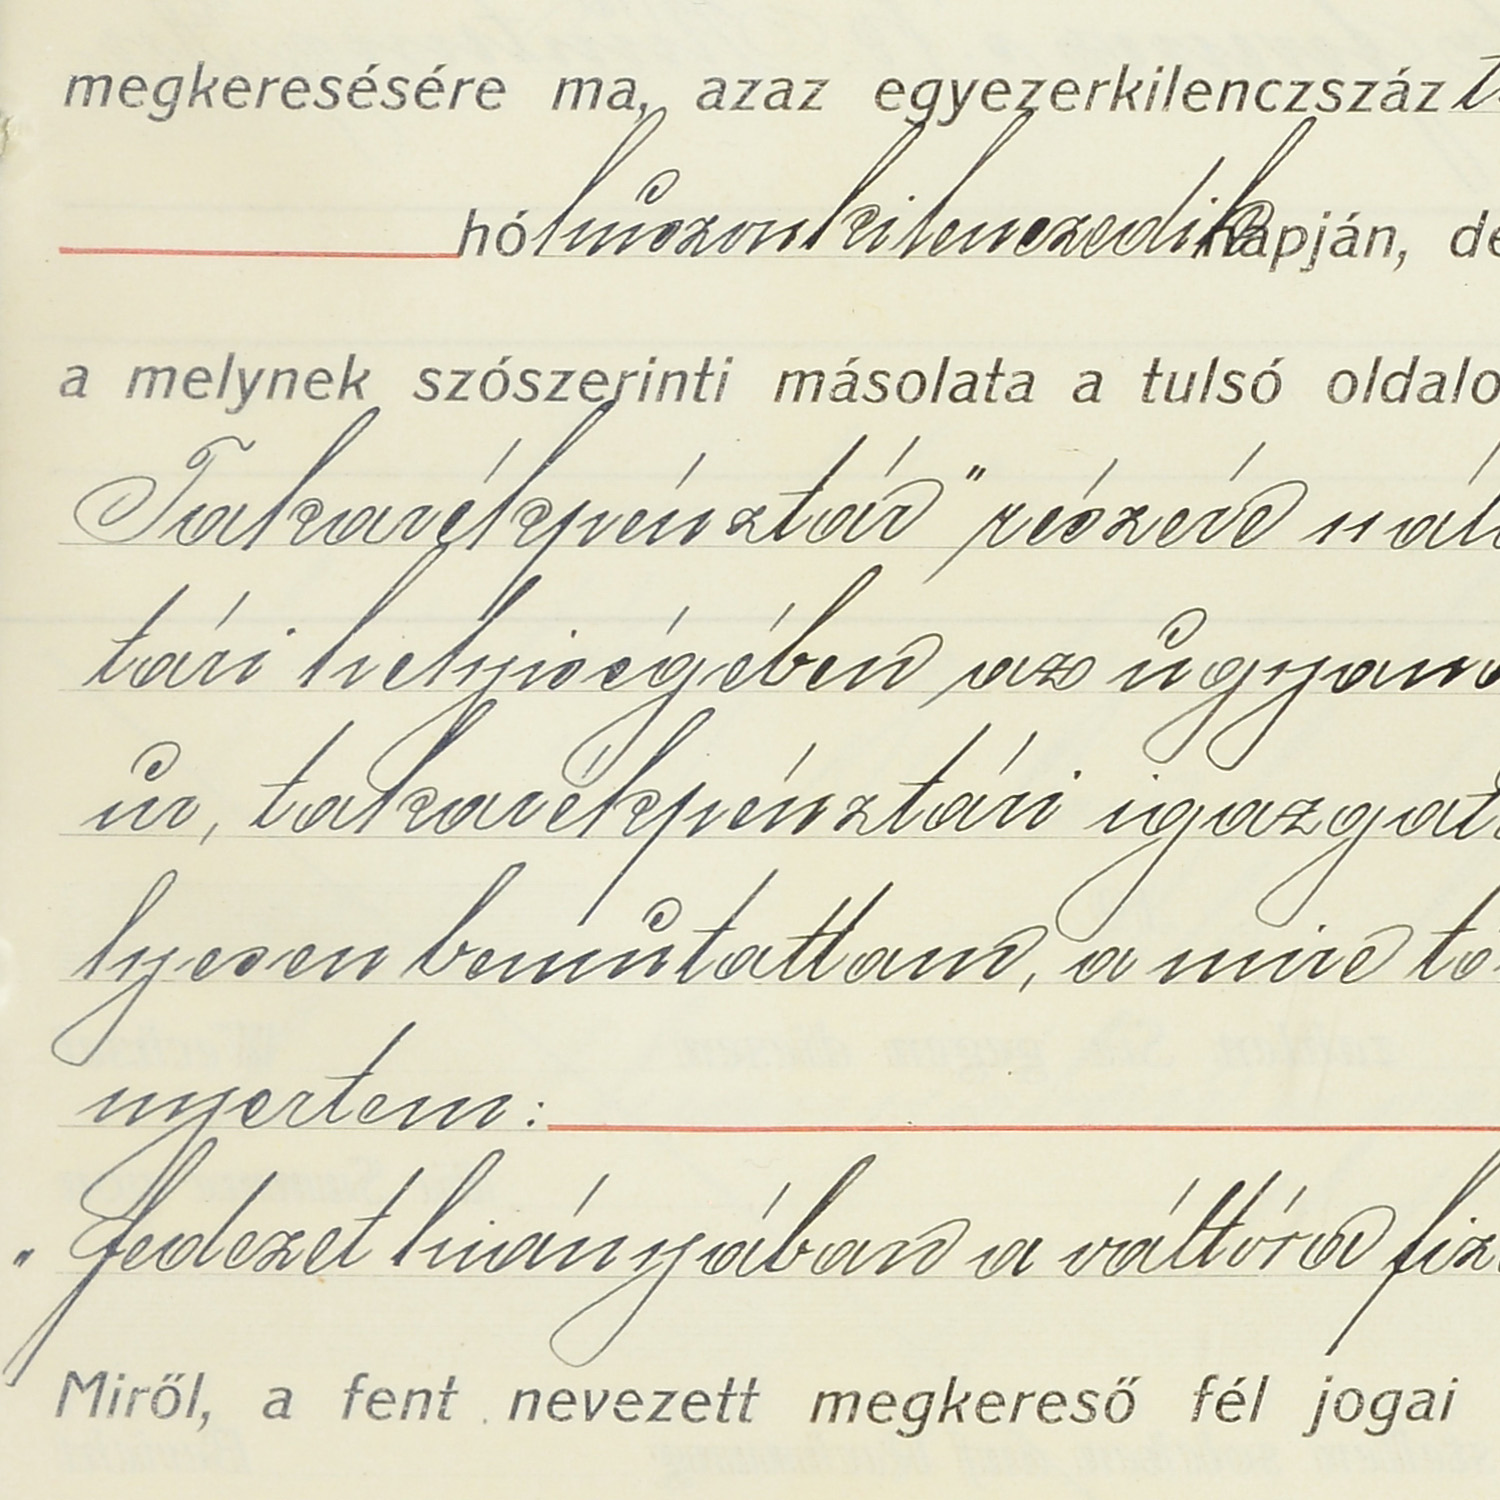 megkeresésére ma, azaz egyezerkilenczszáz
hó huszonkilenczedik napján,
a melynek szószerinti másolata a tulsó
Takarékpénztár" részére
tári helyiségében az
úr, takarékpénztári
lyesen bemutattam, a mire
nyertem:
"fedezet hiányában a váltóra
Miről, a fent nevezett megkereső fél jogai